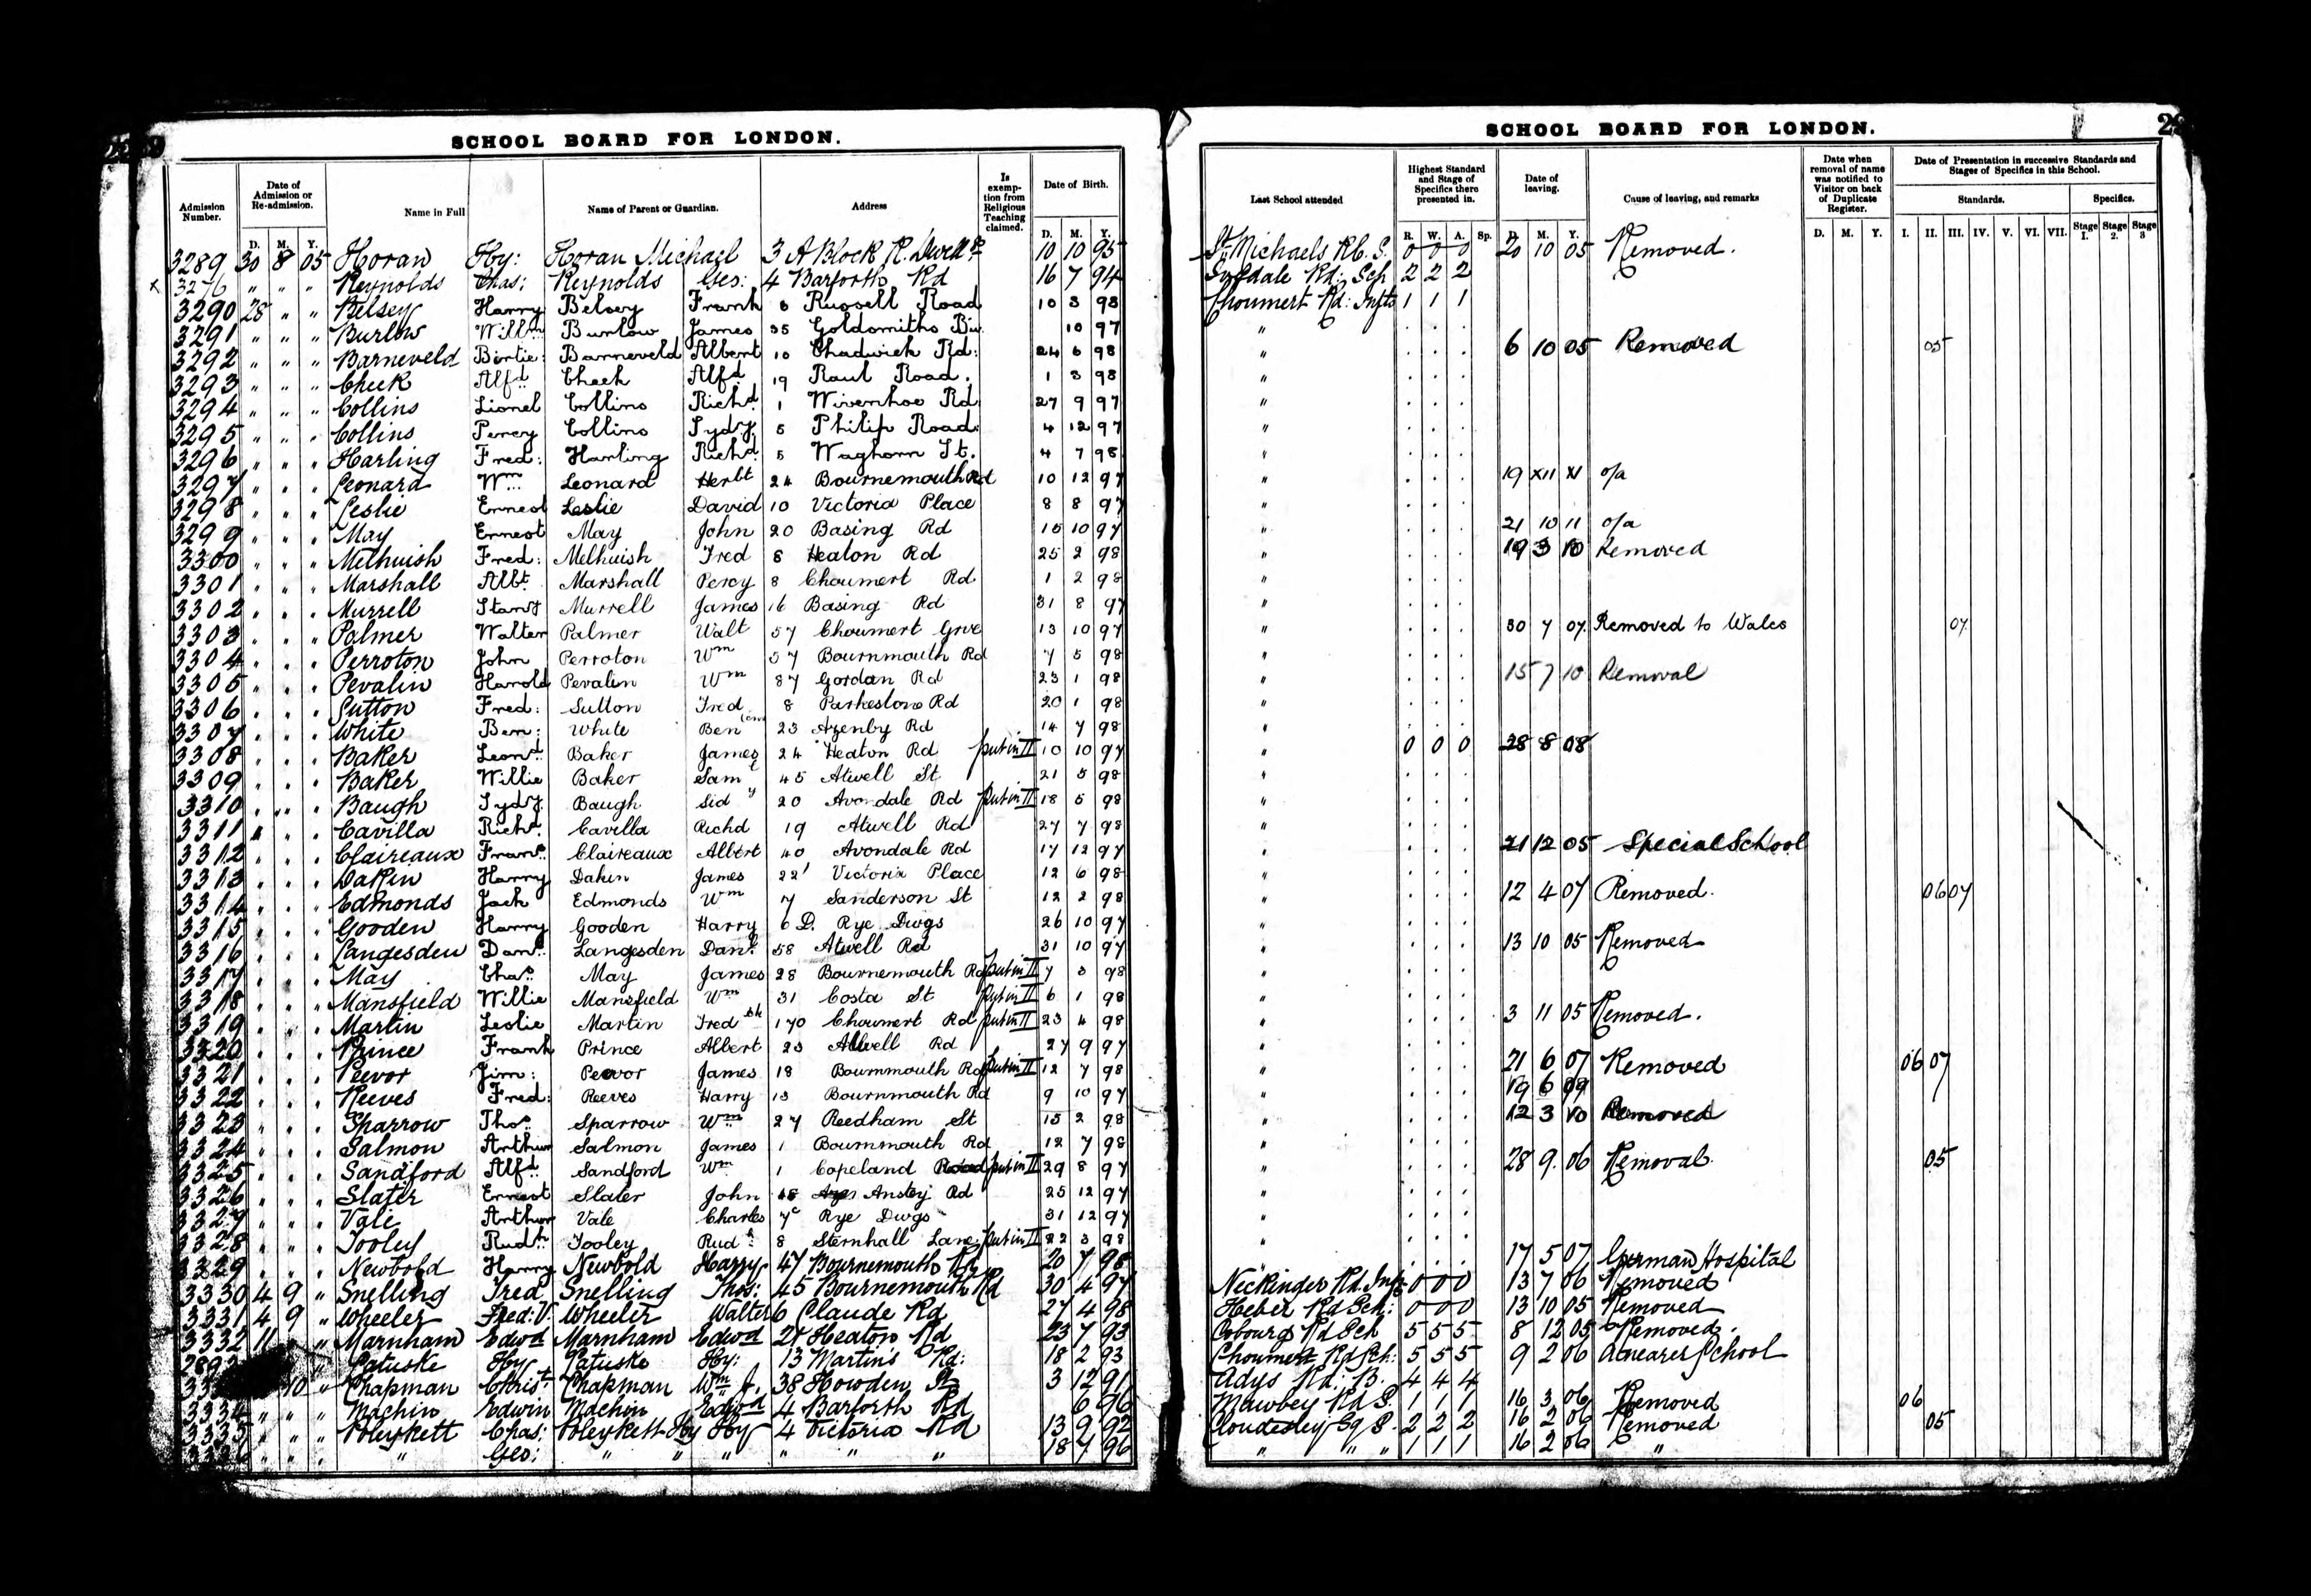 SCHOOL BOARD FOR LONDON.
Admission Number. Date of Admission or Re-admission. D. M. Y. Name in Full Name of Parent or Guardian. Address Is exemption from Religious Teaching claimed. Date of Birth. D. M. Y.
3289 30 8 05 Horan Hy: Horan Michael 3 A Block R. 10 10 95
x 3276 " " " Reynolds Chas: Reynolds Geo: 4 Barforth Rd 16 7 94
3290 28 " " Belsey Harry Belsey Frank 6 Russell Road 10 3 98
3291 " " " Burlow Willm Burlow James 35 Goldsmiths 10 97
3292 " " " Barneveld Bertie: Barneveld Albert 10 Chadwick Rd: 24 6 98
3293 " " " Cheek Alfd Cheek Alfd 19 Raul Road. 1 3 98
3294 " " " Collins Lionel Collins Richd 1 Wivenhoe Rd 27 9 97
3295 " " " Collins Percy Collins Sydy 5 Philip Road. 4 12 97
3296 " " " Harling Fred: Harling Richd 5 Waghorn St. 4 7 98
3297 " " " Leonard Wm Leonard Herbt 24 Bournemouth Rd 10 12 97
3298 " " " Leslie Ernest Leslie David 10 Victoria Place 8 8 97
3299 " " " May Ernest May John 20 Basing Rd 15 10 97
3300 " " " Melhuish Fred: Melhuish Fred 8 Heaton Rd 25 2 98
3301 " " " Marshall Albt. Marshall Percy 8 Choumert Rd 1 2 98
3302 " " " Murrell Stany Murrell James 16 Basing Rd 31 8 97
3303 " " " Palmer Walter Palmer Walt 57 Choumert Grve 13 10 97
3304 " " " Perroton John Perroton Wm 57 Bournmouth Rd 7 5 98
3305 " " " Pevalin Harold Pevalin Wm 87 Gordan Rd 23 1 98
3306 " " " Sutton Fred: Sutton Fred 8 Parkestone Rd 20 1 98
3307 " " " White Ben: White Ben 23 Azenby Rd 14 7 98
3308 " " " Baker Leond Baker James 24 Heaton Rd put in II 10 10 97
3309 " " " Baker Willie Baker Saml 45 Atwell St 21 5 98
3310 " " " Baugh Sydy Baugh Sidy 20 Avondale Rd put in II 18 5 98
3311 " " " Cavilla Richd Cavilla Richd 19 Atwell Rd 27 7 98
3312 " " " Claireaux Frans Claireaux Albert 40 Avondale Rd 17 12 97
3313 " " " Daken Harry Daken James 22 Victoria Place 12 6 98
3314 " " " Edmonds Jack Edmonds Wm 7 Sanderson St 12 2 98
3315 " " " Gooden Harry Gooden Harry 6 D. Rye Dwgs 26 10 97
3316 " " " Langesden Danl. Langesden Danl. 58 Atwell Rd 31 10 97
3317 " " " May Chas. May James 28 Bournemouth Rd put in II 7 3 98
3318 " " " Mansfield Willie Mansfield Wm 31 Costa St put in II 6 1 98
3319 " " " Martin Leslie Martin Fredk 170 Choumert Rd put in II 23 4 98
3320 " " " Prince Frank Prince Albert 23 Atwell Rd 27 9 97
3321 " " " Peevor Jim: Peevor James 18 Bournmouth Rd put in II 12 7 98
3322 " " " Reeves Fred: Reeves Harry 13 Bournmouth Rd 9 10 97
3323 " " " Sparrow Thos Sparrow Wm 27 Reedham St 15 2 98
3324 " " " Salmon Arthur Salmon James 1 Bournmouth Rd 12 7 98
3325 " " " Sandford Alfd. Sandford Wm 1 Copeland Road put in II 29 8 97
3326 " " " Slater Ernest Slater John 48 Anstey Rd 25 12 97
3327 " " " Vale Arthur Vale Charles 7c Rye Dwgs 31 12 97
3328 " " " Tooley Rudh Tooley Rudh 8 Sternhall Lane put in II 22 3 98
3329 " " " Newbold Harry Newbold Harry 47 Bournemouth Rd 20 7 98
3330 4 9 " Snelling Fred Snelling Thos: 45 Bournemouth Rd 30 4 97
3331 4 9 " Wheeler Fred: V. Wheeler Walter 6 Claude Rd 27 4 98
3332 11 " " Marnham Edwd Marnham Edwd 27 Heaton Rd 23 7 93
Patuske Hy Patuske Hy: 13 Martin's Rd: 18 2 93
10 " Chapman Christ Chapman Wm J. 38 Howden St 3 12 91
3334 " " " Machin Edwin Machin Edwd 4 Barforth Rd 6 96
3335 " " " Poleykett Chas: Poleykett Hy Hy 4 Victoria Rd 13 9 92
" " " " Geo: " " " " " " 18 7 96
SCHOOL BOARD FOR LONDON.
Last School attended Highest Standard and Stage of Specifics there presented in. R. W. A. Sp. Date of leaving. D. M. Y. Cause of leaving, and remarks Date when removal of name was notified to Visitor on back of Duplicate Register. D. M. Y. Date of Presentation in successive Standards and Stages of Specifics in this School. Standards. I. II. III. IV. V. VI. VII. Specifics. Stage 1. Stage 2. Stage 3
St Michaels R.C. S. 0 0 0 20 10 05 Removed.
Rd: Sch 2 2 2
Choumert Rd: Infts 1 1 1
"
" 6 10 05 Removed 05
"
"
"
"
" 19 XII XI o/a
"
" 21 10 11 o/a
" 19 3 10 Removed
"
"
" 30 7 07. Removed to Wales 07.
"
" 15 7 10 Removal
"
"
" 0 0 0 28 8 08
"
"
"
" 21 12 05 Special School
"
" 12 4 07 Removed. 06 07
"
" 13 10 05 Removed
"
"
" 3 11 05 Removed.
"
" 21 6 07 Removed 06 07
" 19 6 09
" 12 3 10 Removed
"
" 28 9. 06 Removal. 05
"
"
"
" 17 5 07 German Hospital
Neckinger Rd. Infs 0 0 0 13 7 06 Removed
Heber Rd Sch: 0 0 0 13 10 05 Removed
Cobourg Rd Sch 5 5 5 8 12 05 Removed.
Choumert Rd Sch: 5 5 5 9 2 06 A nearer School
Adys Rd: B. 4 4 4
Mawbey Rd S. 1 1 1 16 3 06 Removed 06
Cloudesley Sq S. 2 2 2 16 2 06 Removed 05
" " " 1 1 1 16 2 06 "